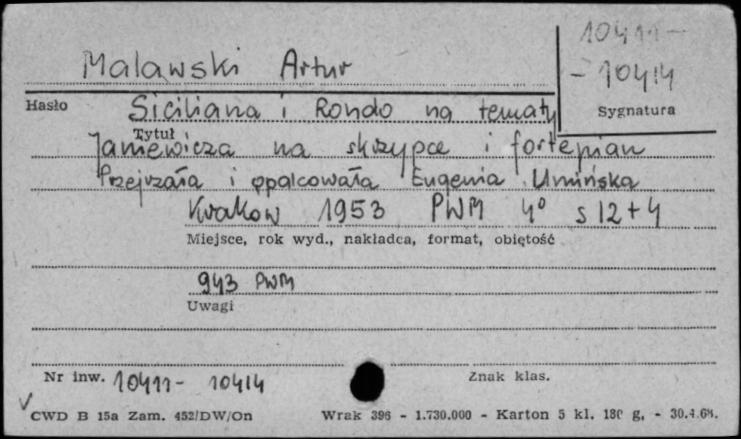 10411-
Malawski Artur
- 10414
Hasło Siciliana i Rondo na tematy Sygnatura
Tytuł
Janiewicza na skrzypce i fortepian
Przejrzała i opalcowała Eugenia Umińska
Krakow 1953 PWM 4° s 12+4
Miejsce, rok wyd., nakładca, format, objętość
943 PWM
Uwagi
Nr inw. 10411- 10414 Znak klas.
CWD B 15a Zam. 452/DW/On Wrak 396 - 1.730.000 - Karton 5 kl. 180 g, - 30.4.68.